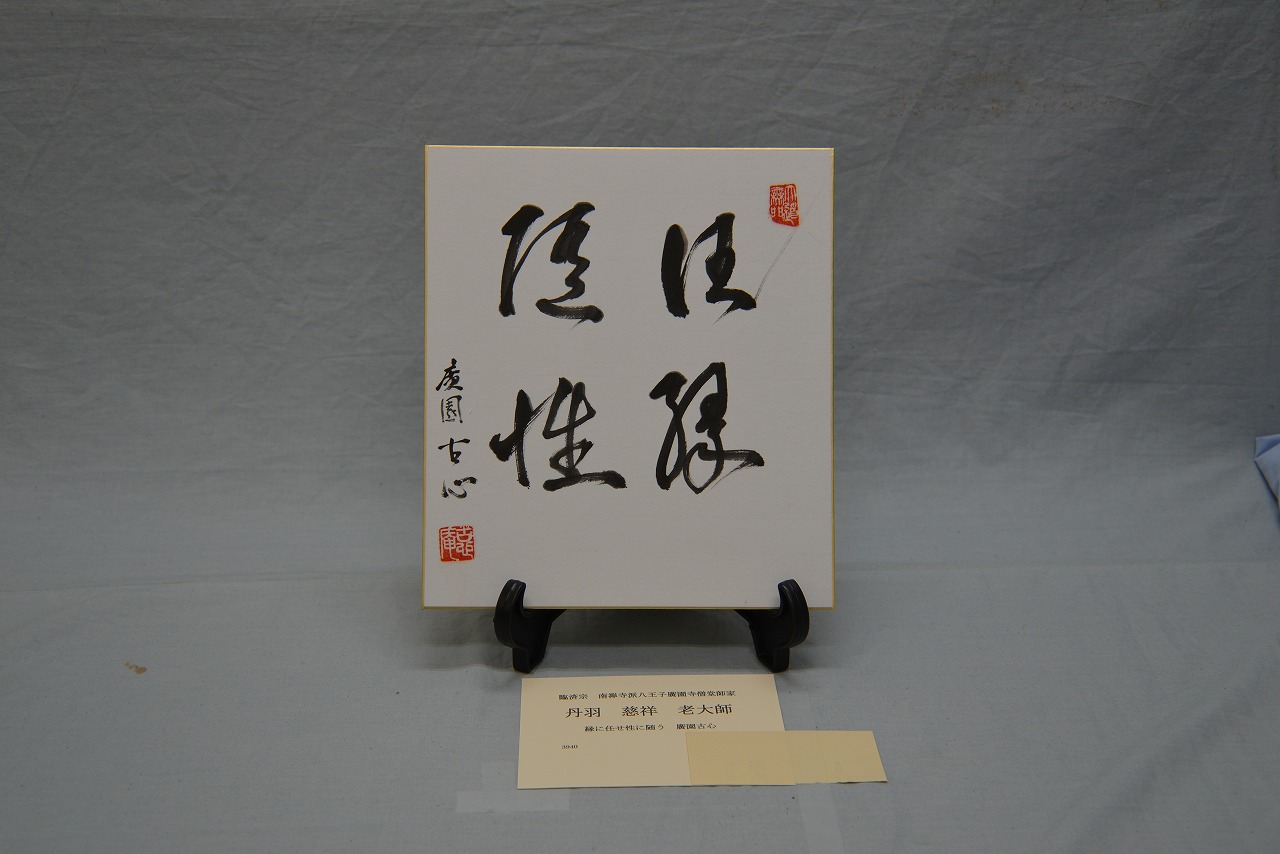 任縁
随性
廣園古心
臨済宗　南禅寺派八王子廣園寺僧堂師家
丹羽　慈祥　老大師
縁に任せ性に随う　廣園古心
3940